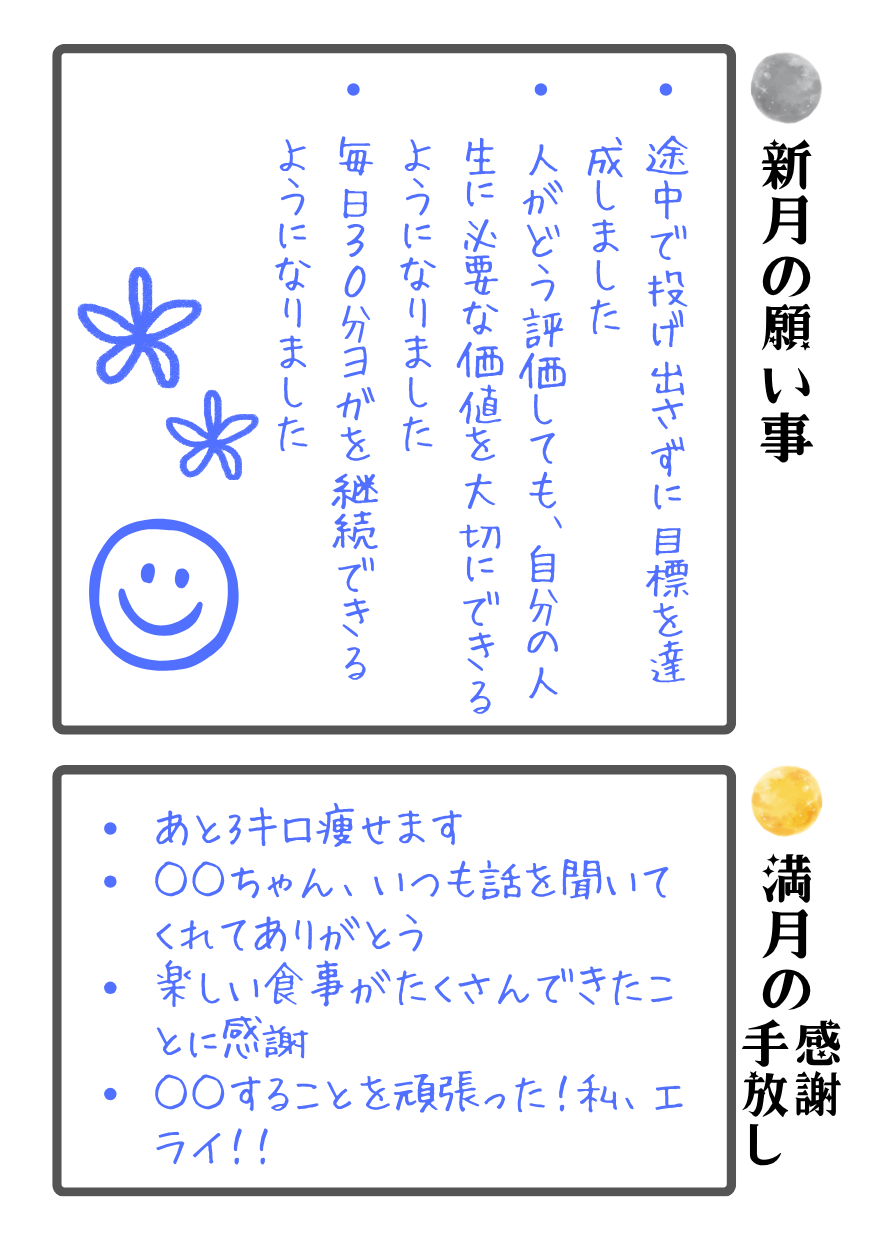 新月の願い事
・途中で投げ出さずに目標を達
成しました
・人がどう評価しても、自分の人
生に必要な価値を大切にできる
ようになりました
・毎日30分ヨガを継続できる
ようになりました
満月の
感謝
手放し
・あと3キロ痩せます
・〇〇ちゃん、いつも話を聞いて
くれてありがとう
・楽しい食事がたくさんできたこ
とに感謝
・〇〇することを頑張った！私、エ
ライ！！